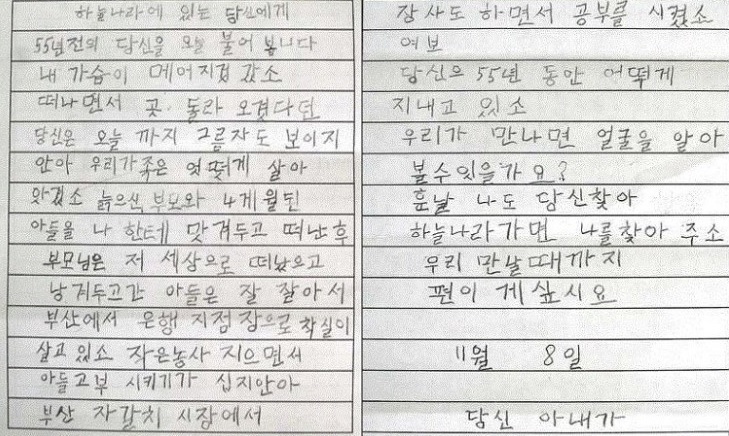 하늘나라에 있는 당신에게
55년전의 당신을 오늘 불어 봅니다
내 가슴이 메어지겁 같소
떠나면서 곳. 돌라 오겠다던
당신은 오늘 까지 그름자도 보이지
안아 우리가족은 엇떻게 살아
왔겠소 늙으신 부모와 4게월된
아들을 나 한테 맞겨두고 떠난후
부모님은 저 세상으로 떠났으고
낭겨두고간 아들은 잘 잘아서
부산에서 은행 지점장으로 착실이
살고 있소 작은농사 지으면서
아들고부 시키기가 십지안아
부산 자갈치 시장에서
장사도 하면서 공부를 시켰소
여보
당신으 55년 동안 어떻게
지내고 있소
우리가 만나면 얼굴을 알아
볼수있을가요?
훗날 나도 당신찾아
하늘나라가면 나를찾아 주소
우리 만날때까지
편이 게싶시요
11월 8일
당신 아내가